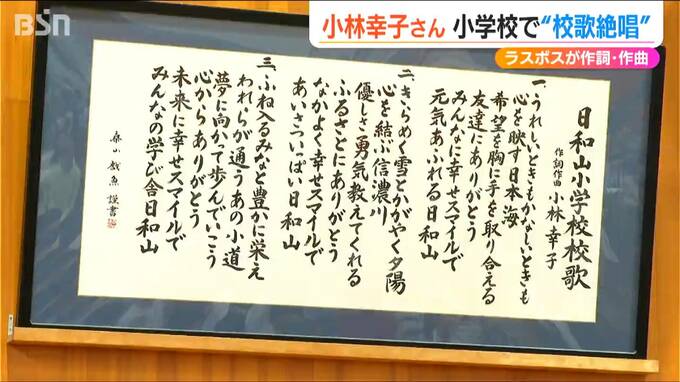 BSN
小林幸子さん 小学校で“校歌絶唱”
ラスボスが作詞・作曲
日和山小学校校歌
作詞作曲 小林幸子
一、うれしいときもかなしいときも
心を映す日本海
希望を胸に手を取り合える
友達にありがとう
みんなに幸せスマイルで
元気あふれる日和山
二、きらめく雪とかがやく夕陽
心を結ぶ信濃川
優しさ勇気教えてくれる
ふるさとにありがとう
なかよく幸せスマイルで
あいさついっぱい日和山
三、ふね入るみなと豊かに栄え
われらが通うあの小道
夢に向かって歩んでいこう
心からありがとう
未来に幸せスマイルで
みんなの学び舎日和山